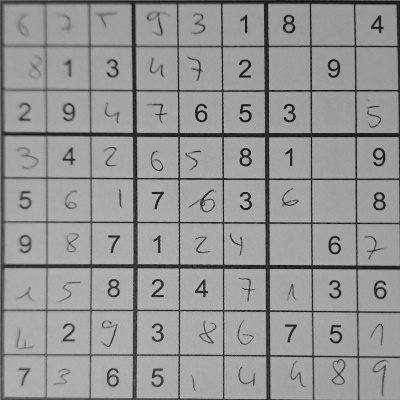 6 7 5 9 3 1 8 4
8 1 3 4 7 2 9
2 9 4 7 6 5 3 5
3 4 2 6 5 8 1 9
5 6 1 7 6 3 6 8
9 8 7 1 2 4 6 7
1 5 8 2 4 7 1 3 6
4 2 9 3 8 6 7 5 1
7 3 6 5 1 4 4 8 9